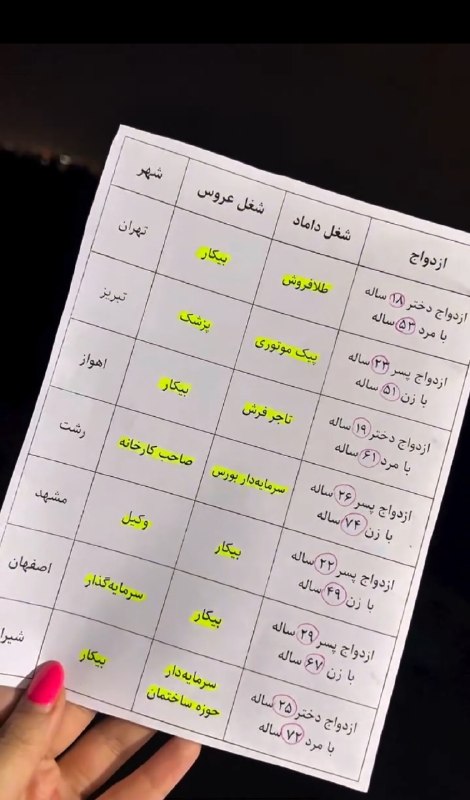 ازدواج شغل داماد شغل عروس شهر
ازدواج دختر ۱۸ ساله
با مرد ۵۳ ساله
طلافروش
بیکار
تهران
ازدواج پسر ۲۳ ساله
با زن ۵۱ ساله
پیک موتوری
پزشک
تبریز
ازدواج دختر ۱۹ ساله
با مرد ۶۱ ساله
تاجر فرش
بیکار
اهواز
ازدواج پسر ۲۶ ساله
با زن ۷۴ ساله
سرمایه‌دار بورس
صاحب کارخانه
رشت
ازدواج پسر ۲۲ ساله
با زن ۴۹ ساله
بیکار
وکیل
مشهد
ازدواج پسر ۲۹ ساله
با زن ۶۷ ساله
بیکار
سرمایه‌گذار
اصفهان
ازدواج دختر ۲۵ ساله
با مرد ۷۲ ساله
سرمایه‌دار
حوزه ساختمان
بیکار
شیرا